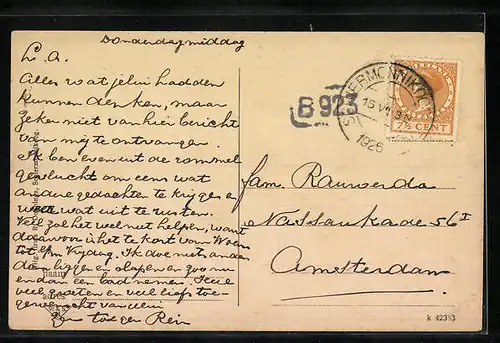 Donderdagmiddag
L. A.
Alles wat jelui hadden
kunnen denken, maar
zeker niet van hier bericht
van mij te ontvangen.
Ik ben even uit de rommel
gevlucht om eens wat
andere gedachten te krijgen
wat uit te rusten.
zal het wel niet helpen, want
daarvoor is het te kort van Woens
tot Vrijdag. Ik doe niets anders
dan liggen en slapen en zoo nu
en dan een bad nemen.
veel groeten en veel liefs toe-
gewenscht van
Rein
SCHIERMONNIKOOG
15 VII
1926
NEDERLAND
7½ CENT
B 923
Fam. Rauwerda
Nassaukade 56 I
Amsterdam
naam
adres
k 42353